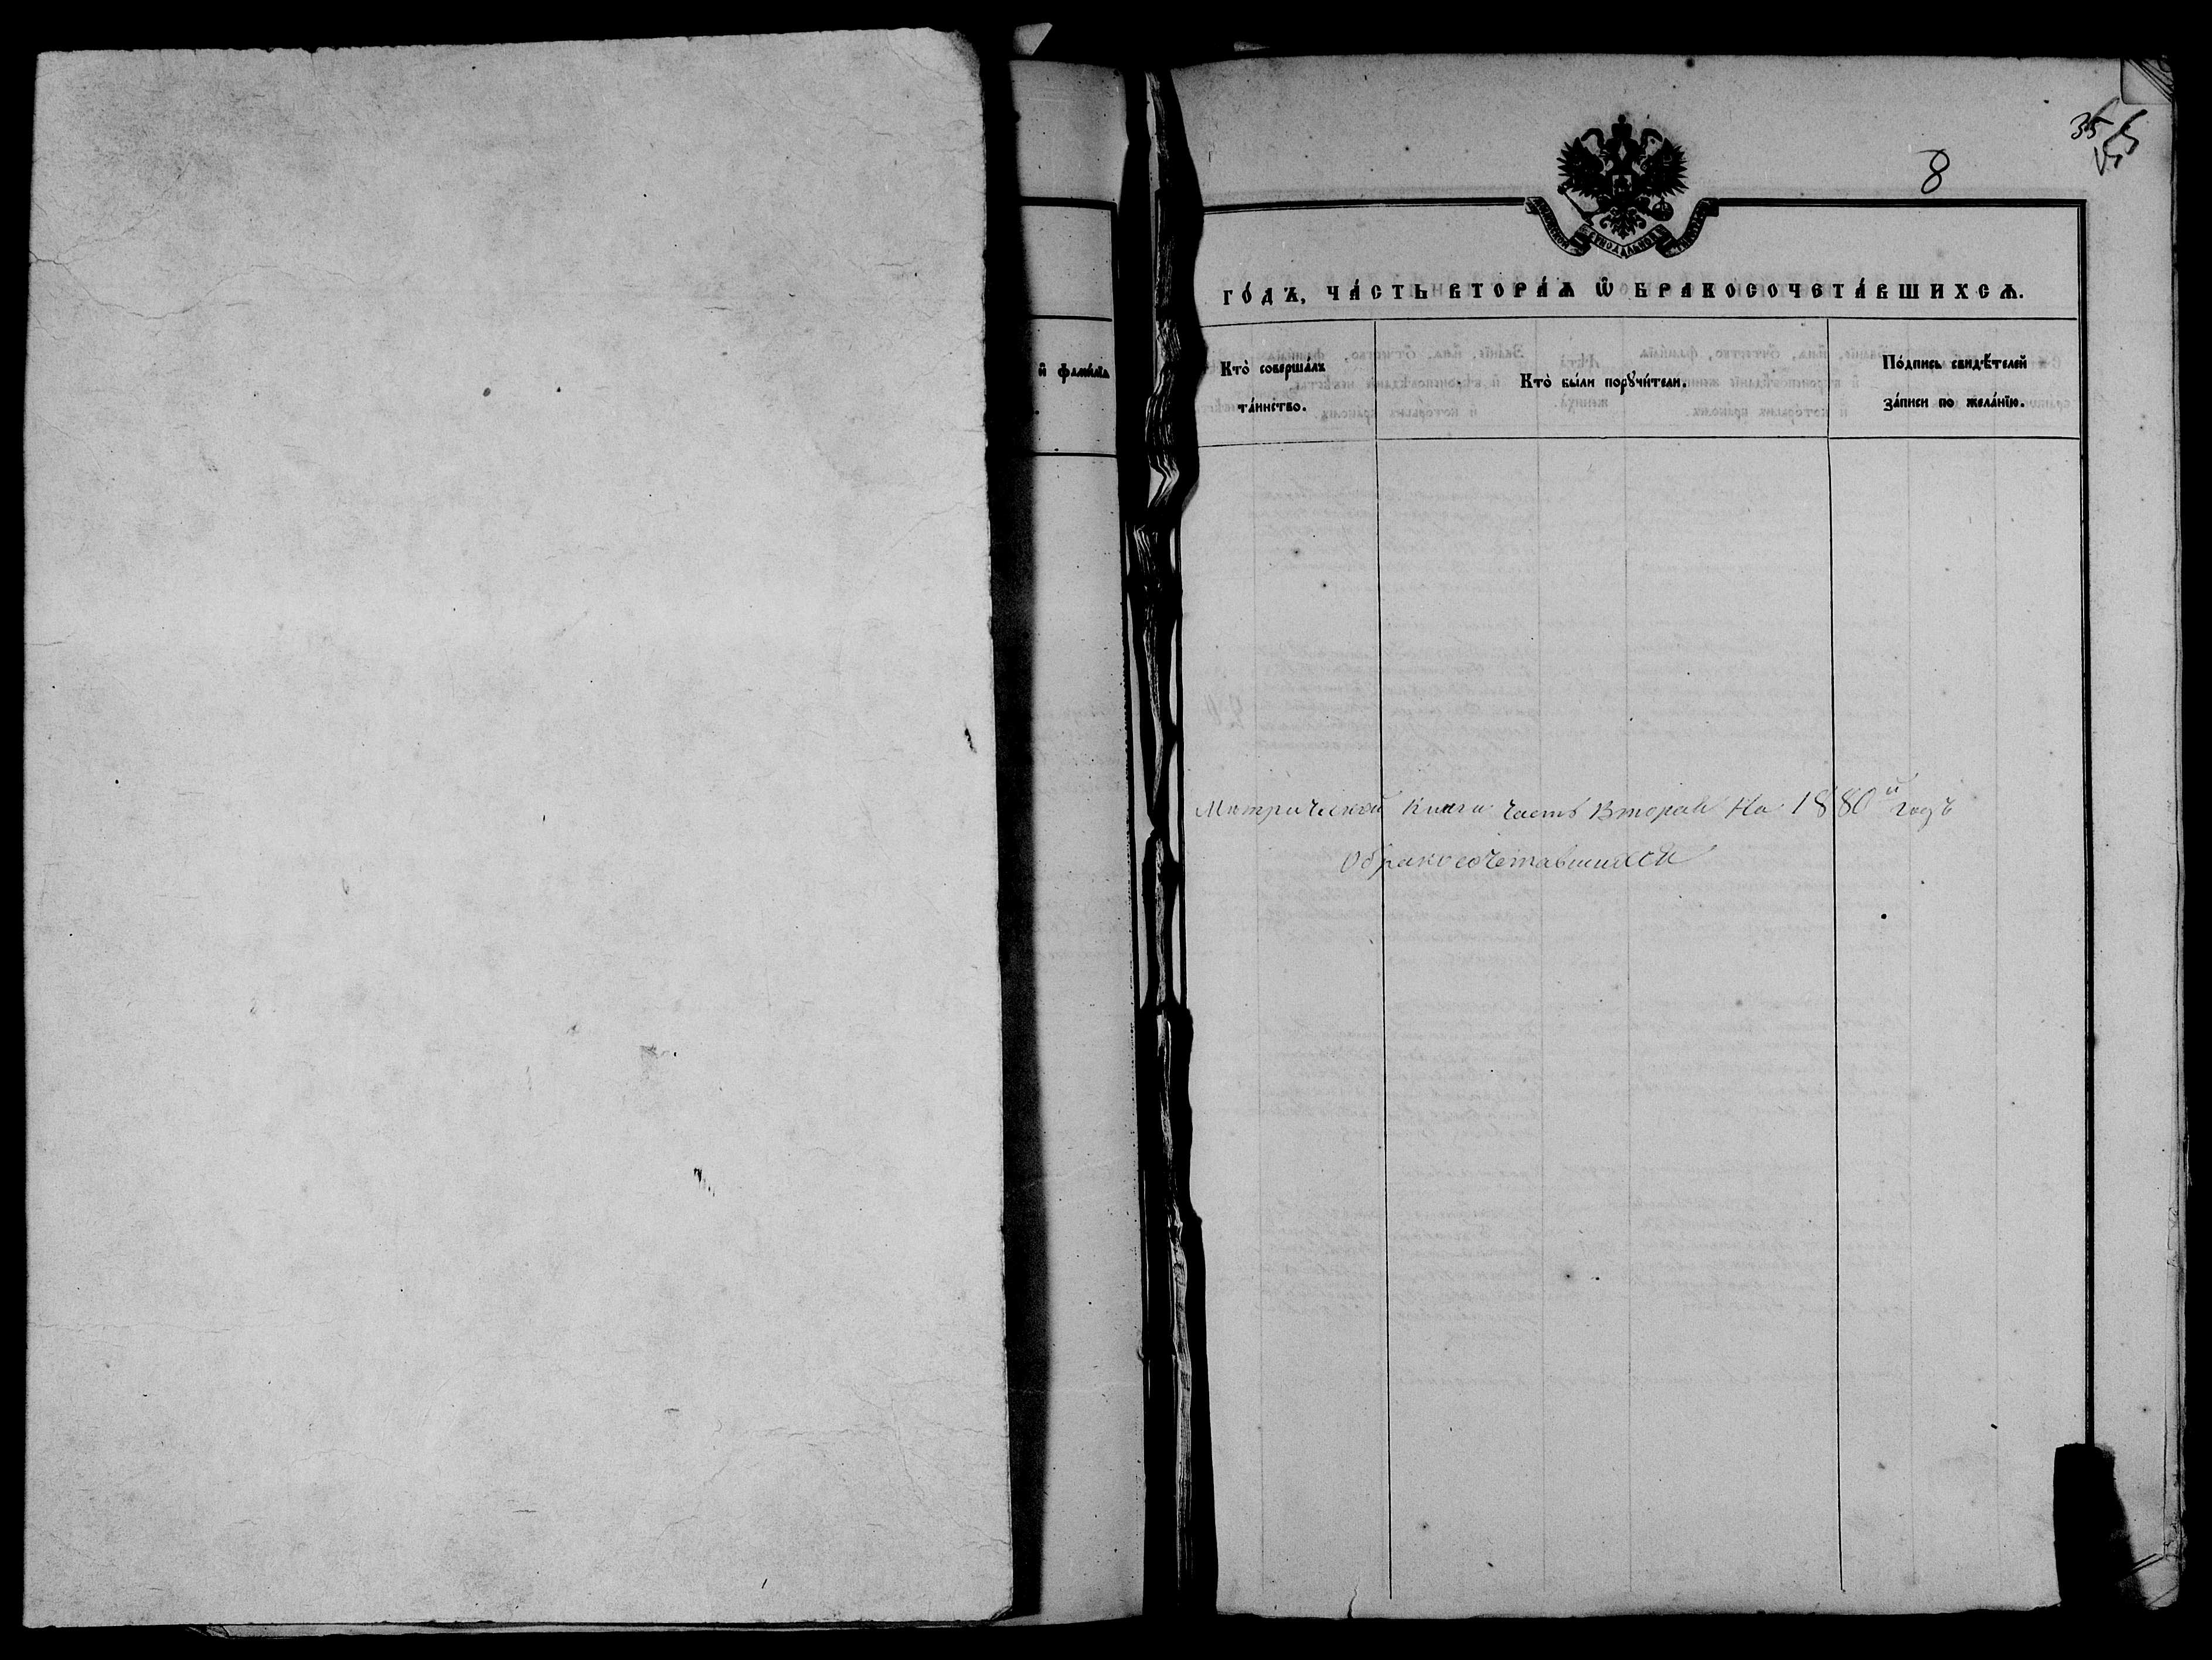 и҆ фами́лїѧ
8
35
ГО́ДЪ, ЧА́СТЬ ВТОРА́Ѧ Ѡ҆ БРАКОСОЧЕТА́ВШИХСѦ.
Кто̀ соверша́лъ
та́инство.
Кто̀ бы́ли порꙋчи́тели.
По́дпись свидѣ́телей
за́писи по жела́нїю.
Метрической книги часть Вторая На 1880й годъ
О бракосочетавшихся